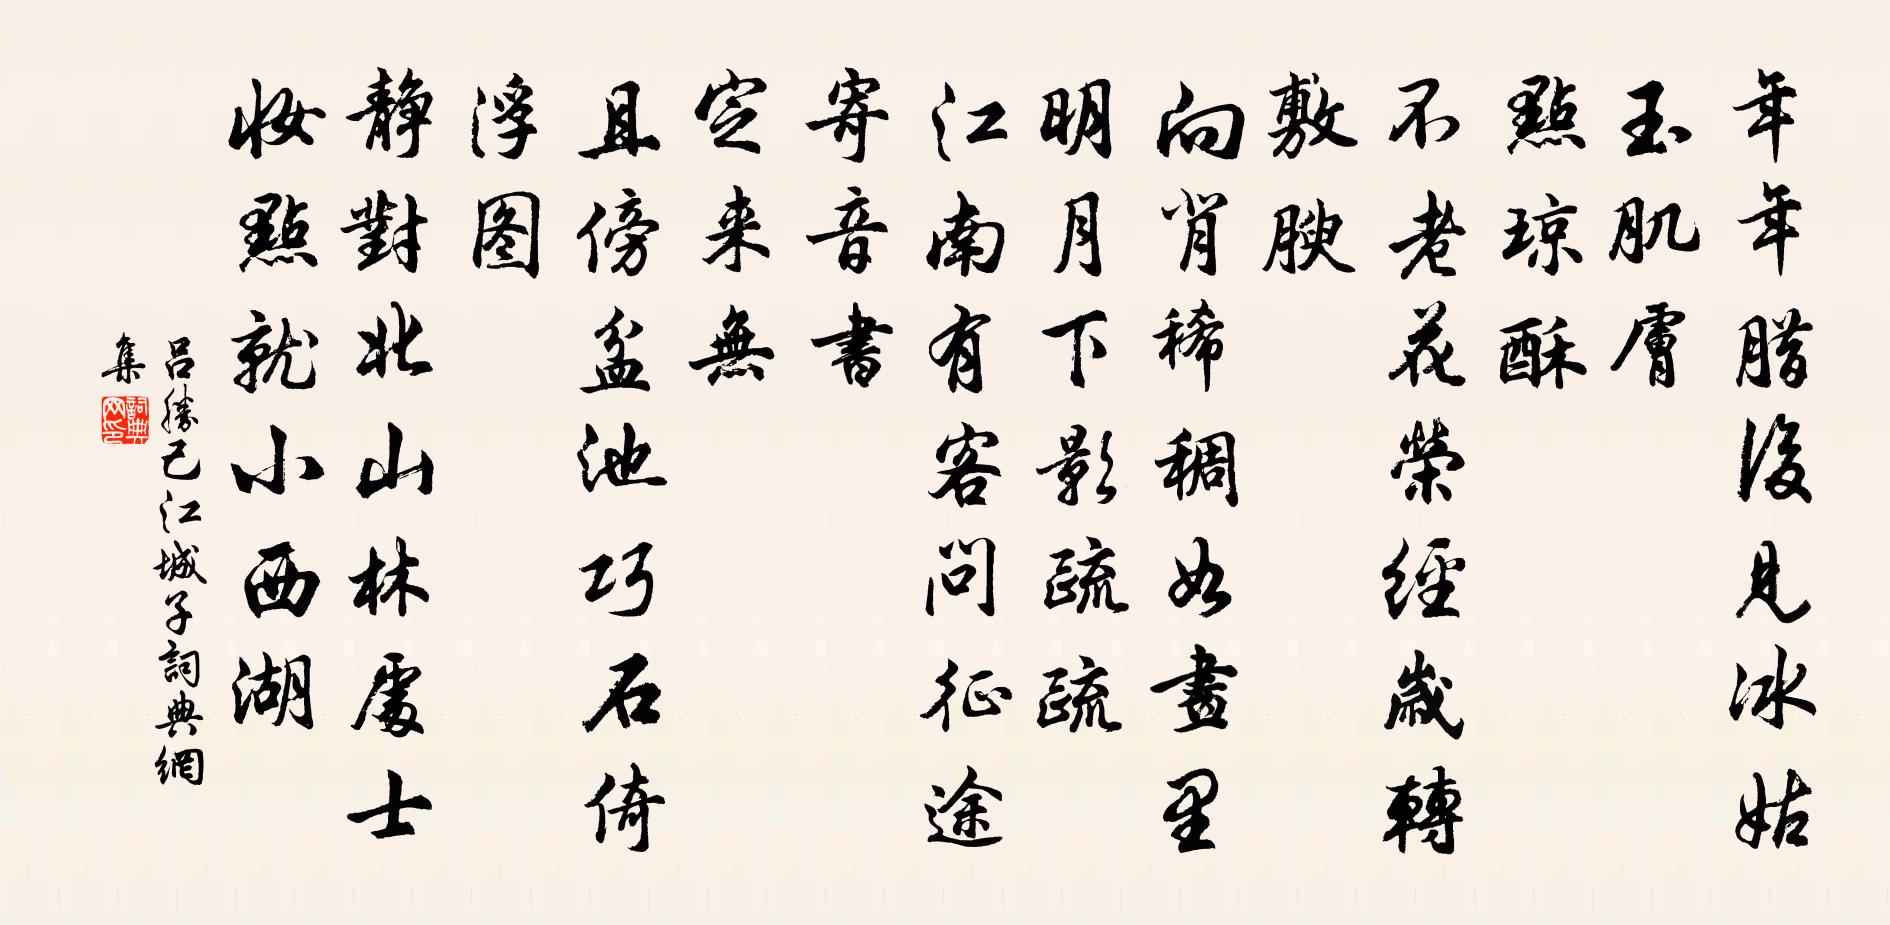 年年腊後見冰姑
玉肌膚
點琼酥
不老花榮經歲轉
敷腴
向背稀稠如畫里
明月下影疏疏
江南有客問征途
寄音書
定来無
且傍盆池巧石倚
浮图
静對北山林處士
妆點就小西湖
吕勝己江城子詞典網
集
詞典
网印